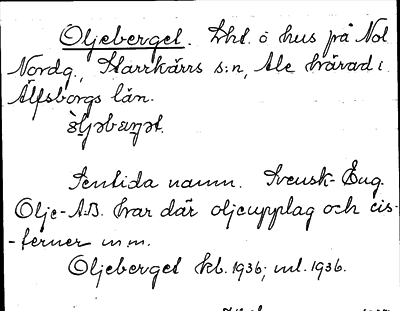 Oljeberget. Lht. o hus på Nol
Nordg., Starrkärrs s:n, Ale härad i
Älfsborgs län.

Sentida namn. Svensk-Eng.
Olje-A.B. har där oljeupplag och cis-
-terner m.m.
Oljeberget kb. 1936; ml. 1936.